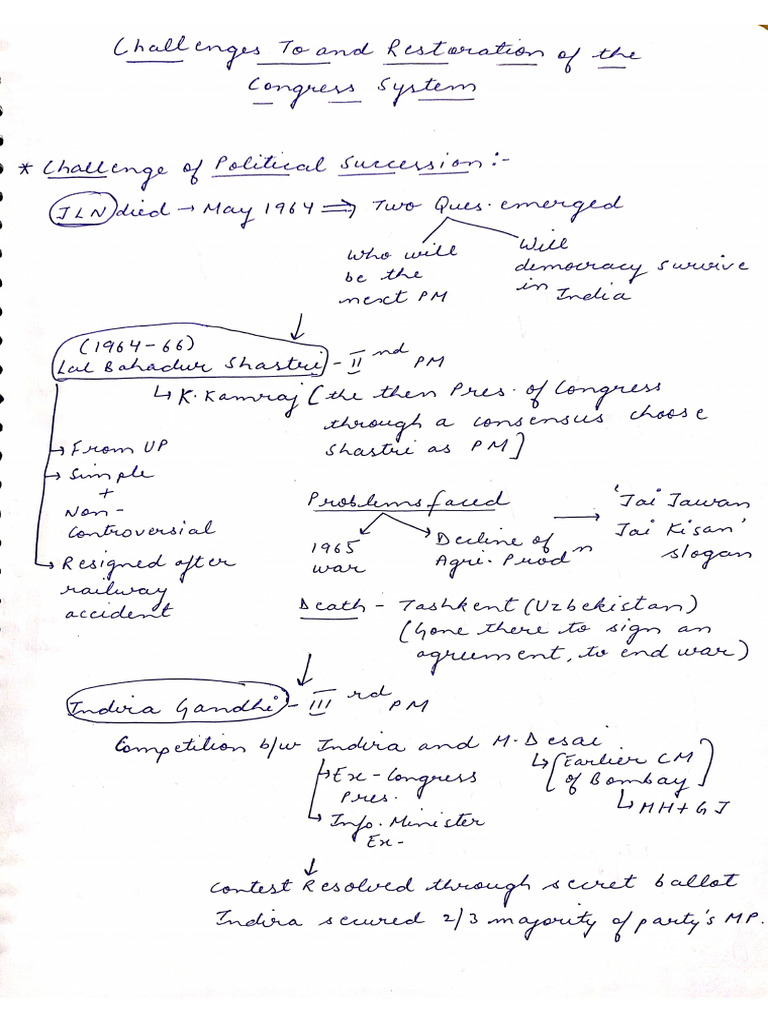 Challenges To and Restoration of the
Congress System
* Challenge of Political Succession:-
JLN died → May 1964 ⇒ Two Ques. emerged
Who will
be the
next PM
Will
democracy survive
in India
(1964-66)
Lal Bahadur Shastri - II nd PM
↳ K. Kamraj (the then Pres. of Congress
through a consensus choose
Shastri as PM]
→ From UP
→ Simple
+
Non-
Controversial
↳ Resigned after
railway
accident
Problems faced
1965
war
Decline of
Agri. Prod n
→ 'Jai Jawan
Jai Kisan'
slogan
Death - Tashkent (Uzbekistan)
(Gone there to sign an
agreement, to end war)
Indira Gandhi - III rd PM
Competition b/w Indira and M. Desai
→ Ex-Congress
Pres.
↳ Info. Minister
Ex-
↳ [Earlier CM
of Bombay]
↳ MH+GJ
Contest Resolved through secret ballot
Indira secured 2/3 majority of party's MP.